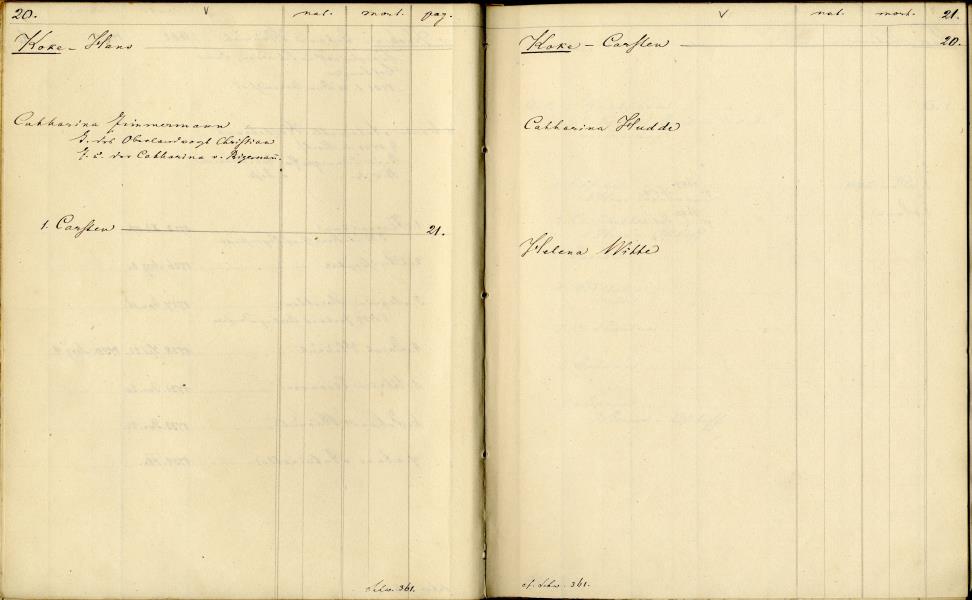 20. v nat. mort. pag.
Koke - Hans
Catharina Zimmermann
T. des Oberlandvogt Christian
Z. u. der Catharina v. Rigeman.
1. Carsten 21.
Schw. 361.
v nat. mort. 21.
Koke - Carsten 20.
Catharina Hudde
Helena Witte
cf. Schw. 361.